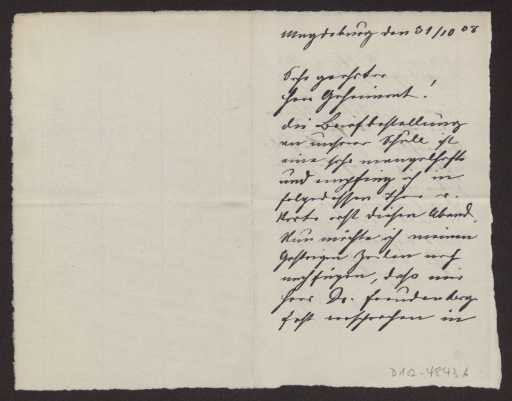 Magdeburg den 31/10 08
Sehr geehrter
Herr Geheimrat!
die Briefbestellung
an unserer Schule ist
eine sehr mangelhafte
und empfing ich in
folgedessen Ihre v.
Karte erst diesen Abend.
Nun möchte ich meinen
gestrigen Zeilen noch
nachfügen, daß mir
Herr Dr. Freudenberg
fest versprochen in
D102-4843